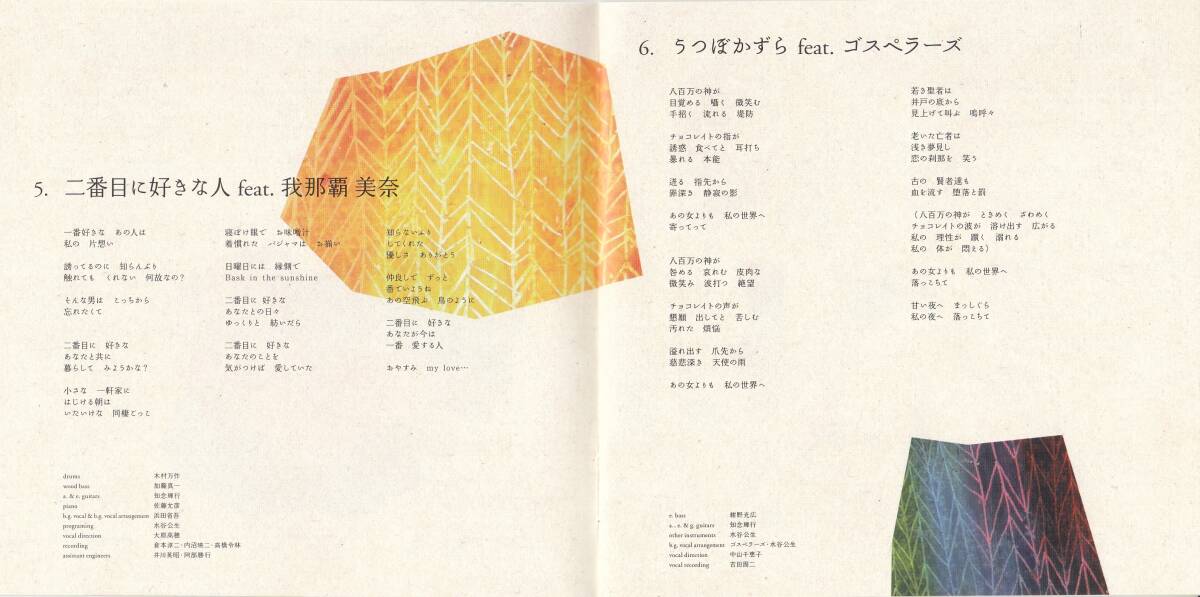 5. 二番目に好きな人 feat. 我那覇 美奈
一番好きな　あの人は
私の　片想い
誘ってるのに　知らんぷり
触れても　くれない　何故なの？
そんな男は　とっちから
忘れたくて
二番目に　好きな
あなたと共に
暮らして　みようかな？
小さな　一軒家に
はじける朝は
いたいけな　同棲ごっこ
寝ぼけ眼で　お味噌汁
着慣れた　パジャマは　お揃い
日曜日には　縁側で
Bask in the sunshine
二番目に 好きな
あなたとの日々
ゆっくりと　紡いだら
二番目に　好きな
あなたのことを
気がつけば　愛していた
知らないふり
してくれた
優しさ　ありがとう
仲良して　ずっと
番でいようね
あの空飛ぶ　鳥のように
二番目に　好きな
あなたが今は
一番　愛する人
おやすみ　my love…
drums 木村万作
wood bass 加藤真一
a. & e. guitars 知念輝行
piano 佐藤允彦
b.g. vocal & b.g. vocal arrangement 浜田省吾
programing 水谷公生
vocal direction 大原高穂
recording 倉本淳二・内沼映二・高橋令林
assistant engineers 井川英昭・阿部勝行
6. うつぼかずら feat. ゴスペラーズ
八百万の神が
目覚める　囁く　微笑む
手招く　流れる　堤防
チョコレイトの指が
誘惑　食べてと　耳打ち
暴れる　本能
迸る　指先から
罪深き　静寂の影
あの女よりも　私の世界へ
寄ってって
八百万の神が
咎める　哀れむ　皮肉な
微笑み　波打つ　絶望
チョコレイトの声が
懇願　出してと　苦しむ
汚れた　煩悩
溢れ出す　爪先から
慈悲深き　天使の雨
あの女よりも　私の世界へ
若き聖者は
井戸の底から
見上げて叫ぶ　嗚呼々
老いた亡者は
浅き夢見し
恋の刹那を　笑う
古の　賢者達も
血を流す　堕落と罰
（八百万の神が　ときめく　ざわめく
チョコレイトの波が　溶け出す　広がる
私の　理性が　躓く　溺れる
私の　体が　悶える）
あの女よりも　私の世界へ
落っこちて
甘い夜へ　まっしぐら
私の夜へ　落っこちて
e. bass 紺野光広
a., e. & g. guitars 知念輝行
other instruments 水谷公生
b.g. vocal arrangement ゴスペラーズ・水谷公生
vocal direction 中山千恵子
vocal recording 吉田園二